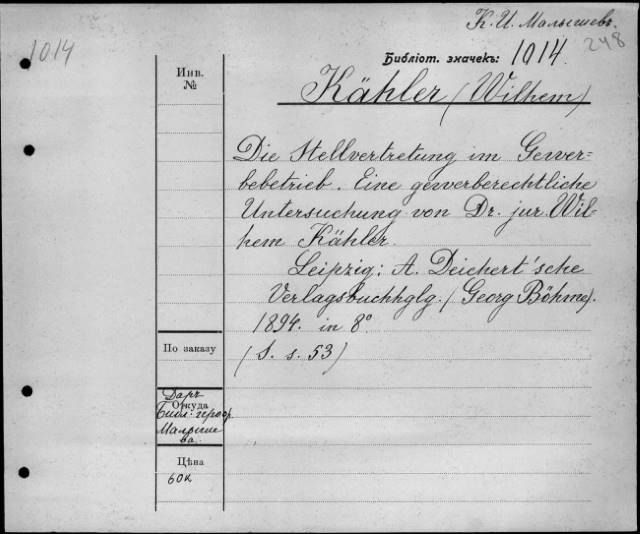 К. И. Малышевъ.
1014
248
Библіот. значекъ: 1014.
Инв.
№
Kähler (Wilhem)
Die Stellvertretung im Gewer=
bebetrieb. Eine gewerberechtliche
Untersuchung von Dr. jur. Wil=
hem Kähler.
Leipzig: A. Deichert'sche
Verlagsbuchhglg. (Georg Böhme).
1894. in 8°
По заказу
(S. s. 53)
Даръ
Откуда
Библ:
Малыше
ва.
Цѣна
60к